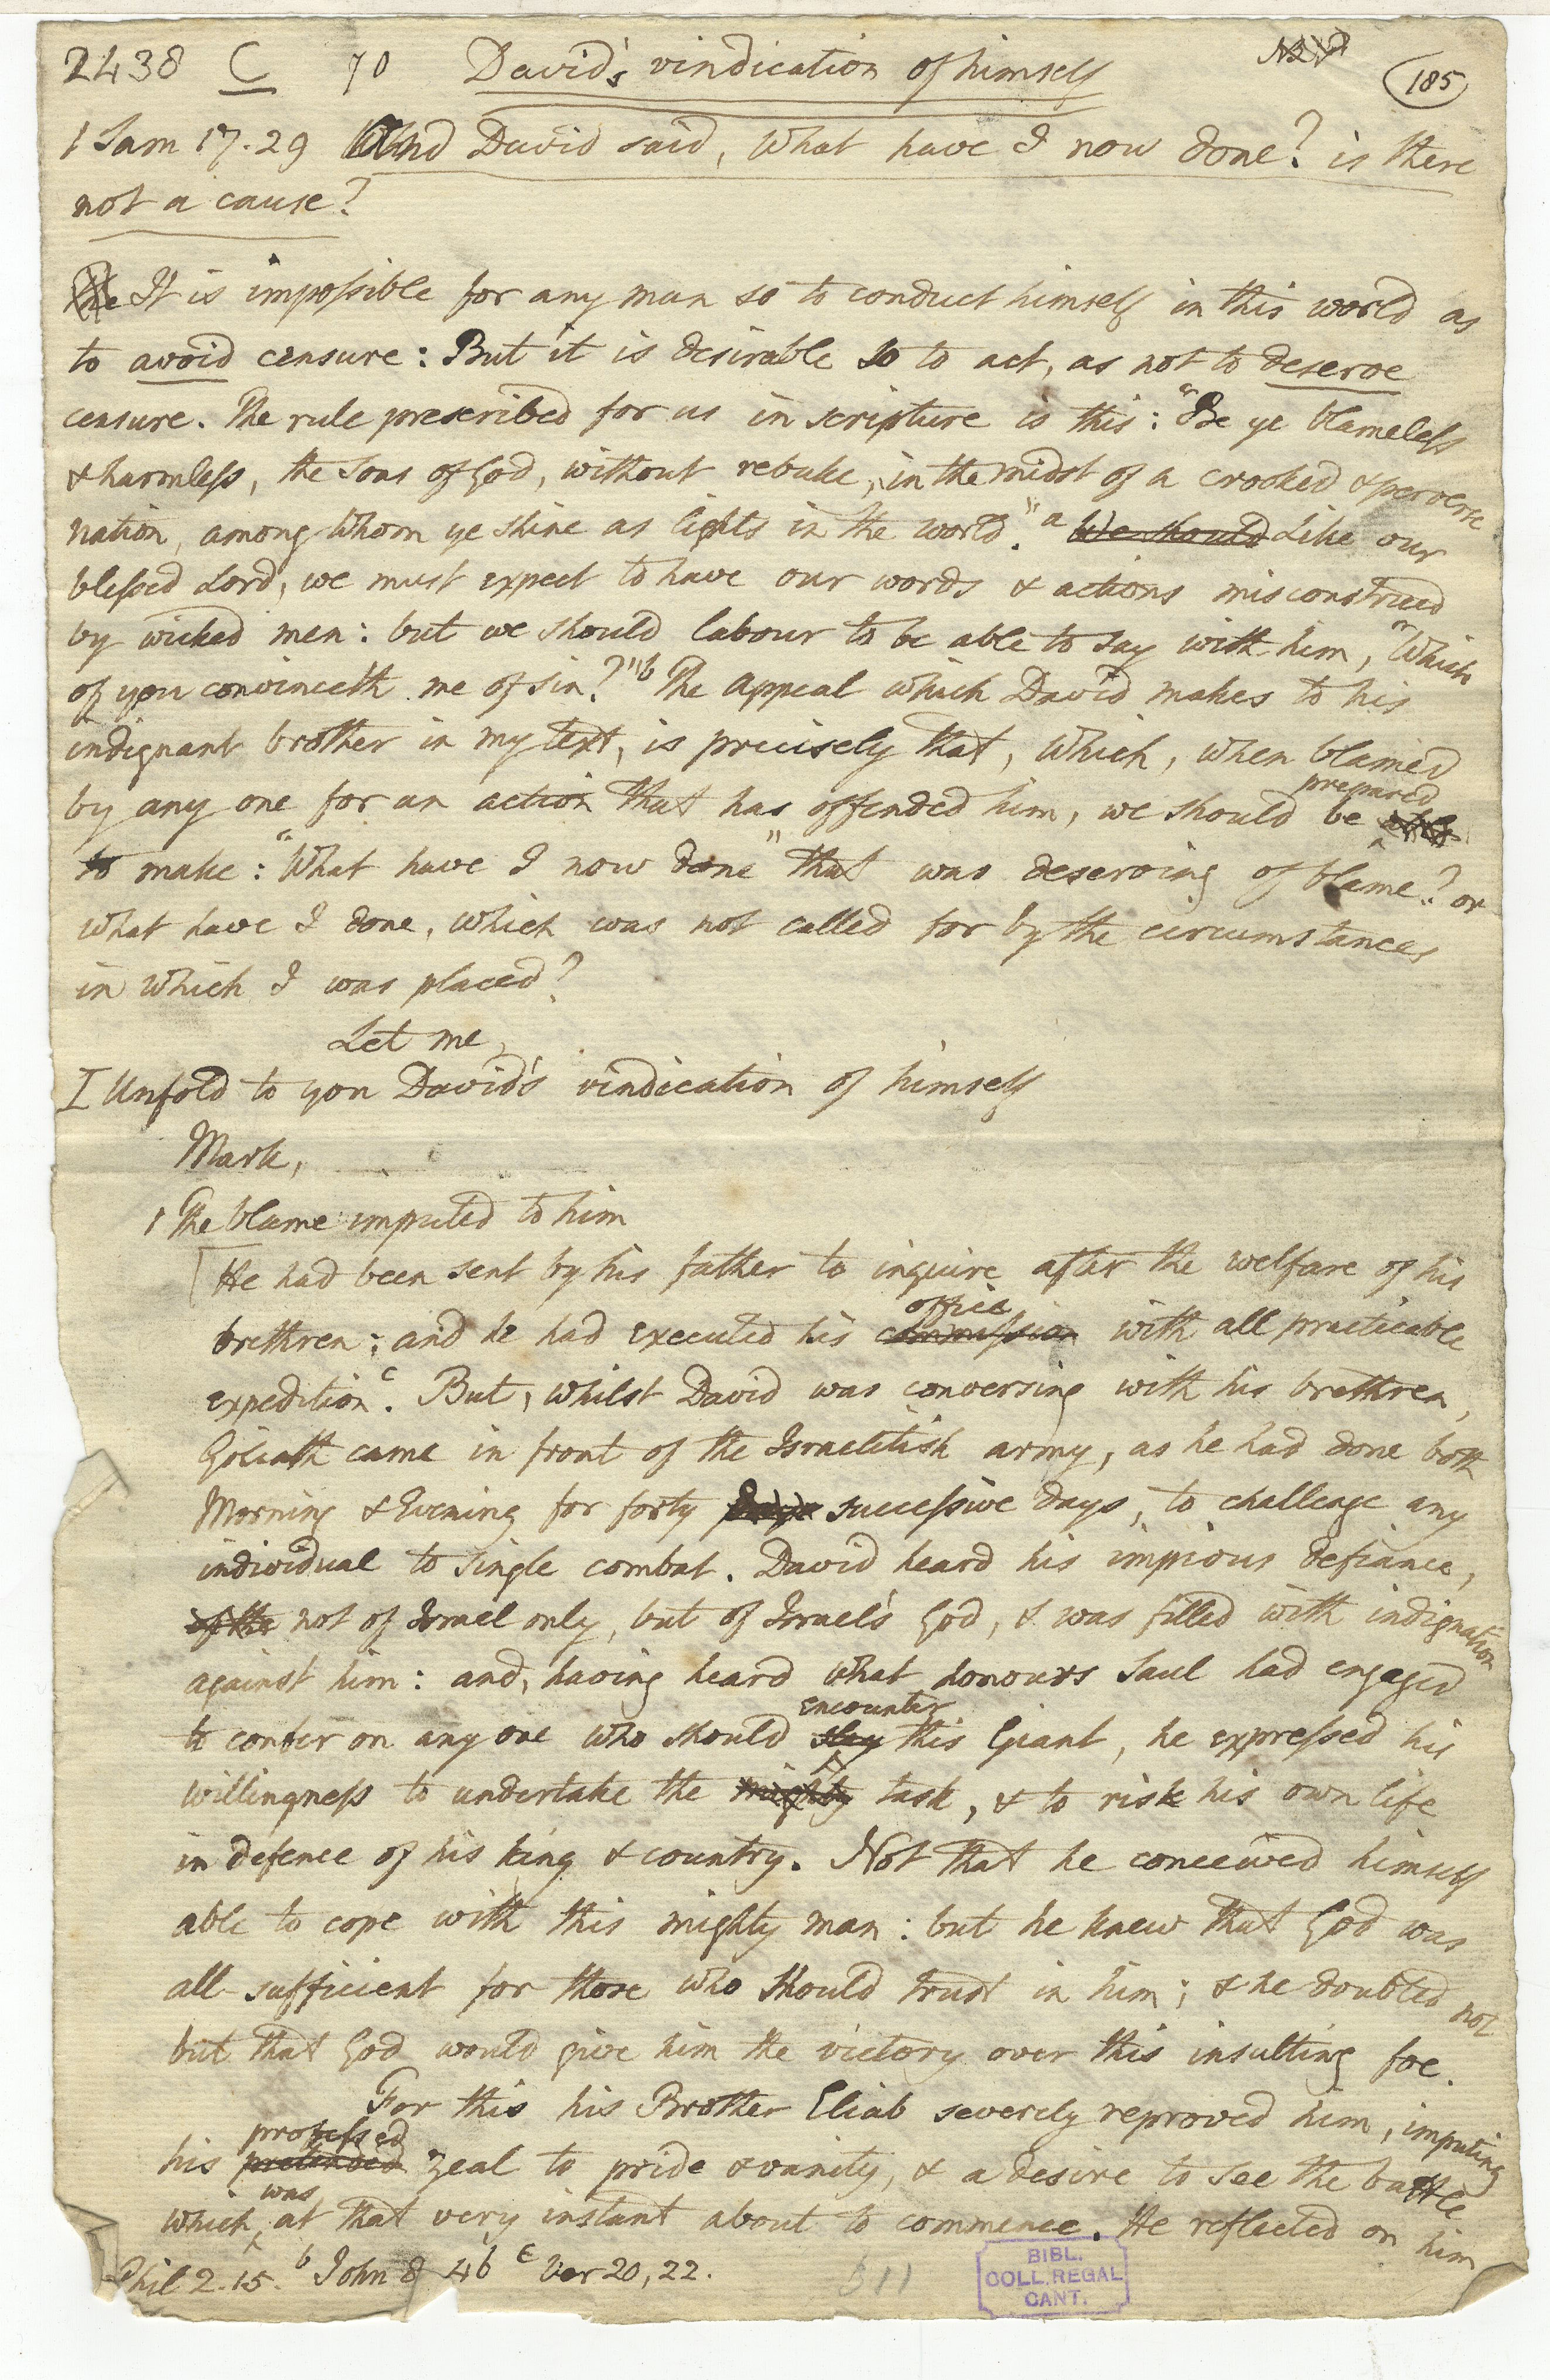 2438 C 70 David's vindication of himself 185
1 Sam 17.29 And David said, What have I now done? is there
not a cause?
It is impossible for any man so to conduct himself in this world as
to avoid censure: But it is desirable so to act, as not to deserve
censure. The rule prescribed for us in scripture is this: "Be ye blameless
& harmless, the Sons of God, without rebuke, in the midst of a crooked & perverse
nation, among whom ye shine as lights in the world." a We should Like our
blessed Lord, we must expect to have our words & actions misconstrued
by wicked men: but we should labour to be able to say with him, "Which
of you convinceth me of sin?" b The appeal which David makes to his
indignant brother in my text, is precisely that, which, when blamed
by any one for an action that has offended him, we should be prepared
to make: "What have I now done" that was deserving of blame? or
what have I done, which was not called for by the circumstances
in which I was placed?
Let me,
I Unfold to you David's vindication of himself
Mark,
1 The blame imputed to him
[He had been sent by his father to inquire after the welfare of his
brethren; and he had executed his commission office with all practicable
expedition c. But, whilst David was conversing with his brethren,
Goliath came in front of the Israelitish army, as he had done both
Morning & Evening for forty days successive days, to challenge any
individual to single combat. David heard his impious defiance,
of the not of Israel only, but of Israel's God, & was filled with indignation
against him: and, having heard what honours Saul had engaged
to confer on any one who should slay encounter this Giant, he expressed his
willingness to undertake the mighty task, & to risk his own life
in defence of his king & country. Not that he conceived himself
able to cope with this mighty man: but he knew that God was
all-sufficient for those who should trust in him; & he doubted not
but that God would give him the victory over this insulting foe.
For this his Brother Eliab severely reproved him, imputing
his pretended professed zeal to pride & vanity, & a desire to see the battle
which was at that very instant about to commence. He reflected on him
Phil 2.15. b John 8 46 c Ver 20, 22.
311
BIBL.
COLL.REGAL
CANT.